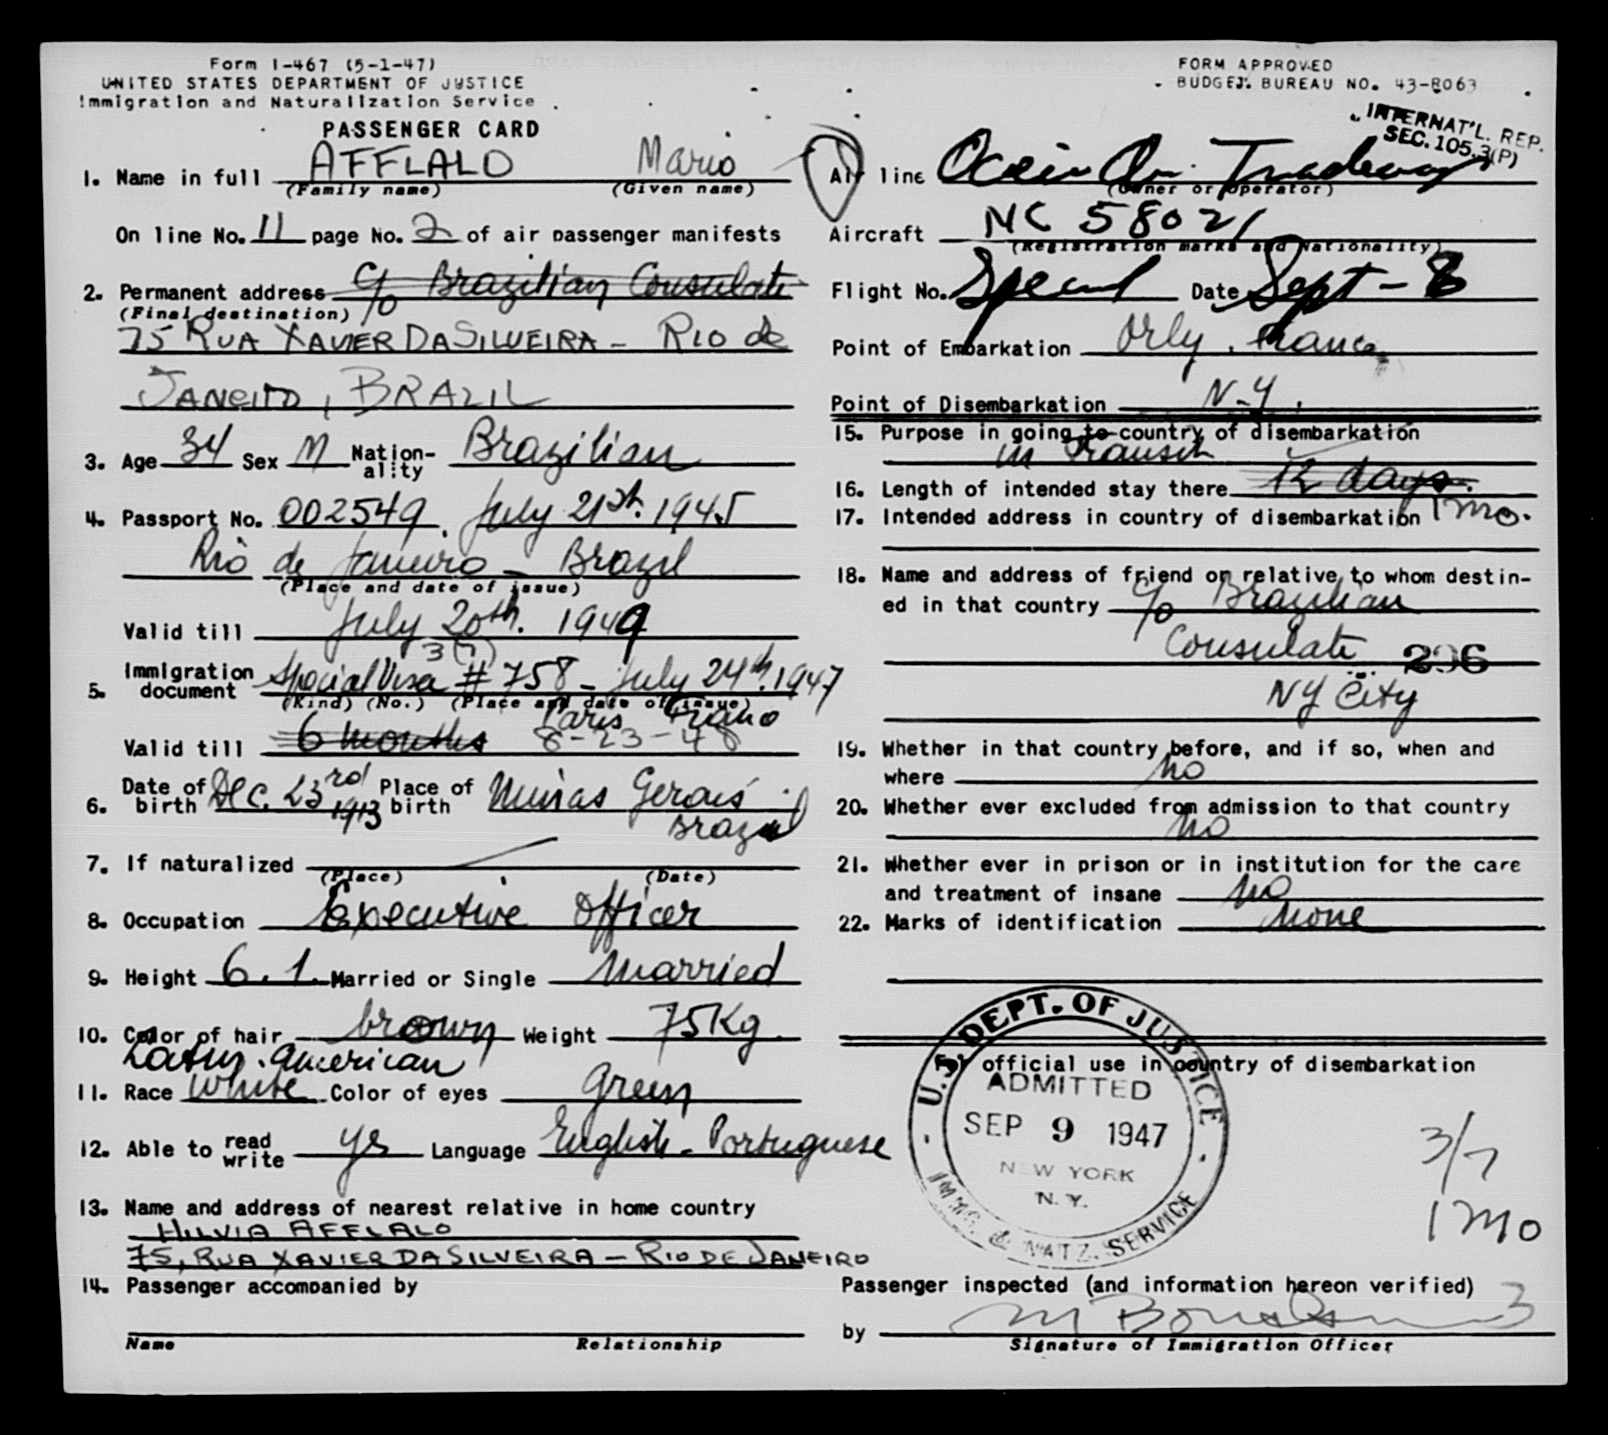 Form I-467 (5-1-47)
UNITED STATES DEPARTMENT OF JUSTICE
Immigration and Naturalization Service
PASSENGER CARD
1. Name in full AFFLALO Mario
(Family name) (Given name)
On line No. 11 page No. 2 of air passenger manifests
2. Permanent address c/o Brazilian Consulate
(Final destination)
75 RUA XAVIER DA SILVEIRA - RIO de
JANEIRO, BRAZIL
3. Age 34 Sex M Nation-ality Brazilian
4. Passport No. 002549. July 21st. 1945
Rio de Janeiro - Brazil
(Place and date of issue)
Valid till July 20th. 1949
3(7)
5. Immigration document Special Visa # 758 - July 24th. 1947
(Kind) (No.) (Place and date of issue)
Paris
Valid till 6 months 8-23-48
6. Date of birth Dec. 23rd 1913 Place of birth Minas Gerais
Brazil
7. If naturalized
(Place) (Date)
8. Occupation Executive Officer
9. Height 6.1. Married or Single Married
10. Color of hair brown Weight 75Kg
Latin.American
11. Race White Color of eyes Green
12. Able to read write yes Language English - Portuguese
13. Name and address of nearest relative in home country
HILVIA AFFLALO
75, RUA XAVIER DA SILVEIRA - RIO DE JANEIRO
14. Passenger accompanied by
Name Relationship
FORM APPROVED
BUDGET BUREAU NO. 43-R063
INTERNAT'L. REP.
SEC. 105.3(P)
Air line Ocean Air Tradeways
(Owner or operator)
Aircraft NC 58021
(Registration marks and Nationality)
Flight No. Special Date Sept - 8
Point of Embarkation Orly, France
Point of Disembarkation N-Y.
15. Purpose in going to country of disembarkation
in transit
16. Length of intended stay there 12 days.
17. Intended address in country of disembarkation 1 mo.
18. Name and address of friend or relative to whom destin-
ed in that country c/o Brazilian
Consulate 296
NY City
19. Whether in that country before, and if so, when and
where No
20. Whether ever excluded from admission to that country
No
21. Whether ever in prison or in institution for the care
and treatment of insane No
22. Marks of identification None
official use in country of disembarkation
U.S. DEPT. OF JUSTICE
ADMITTED
SEP 9 1947
NEW YORK
N.Y.
IMMG. & NATZ. SERVICE
3/7
1 mo
Passenger inspected (and information hereon verified)
by
Signature of Immigration Officer